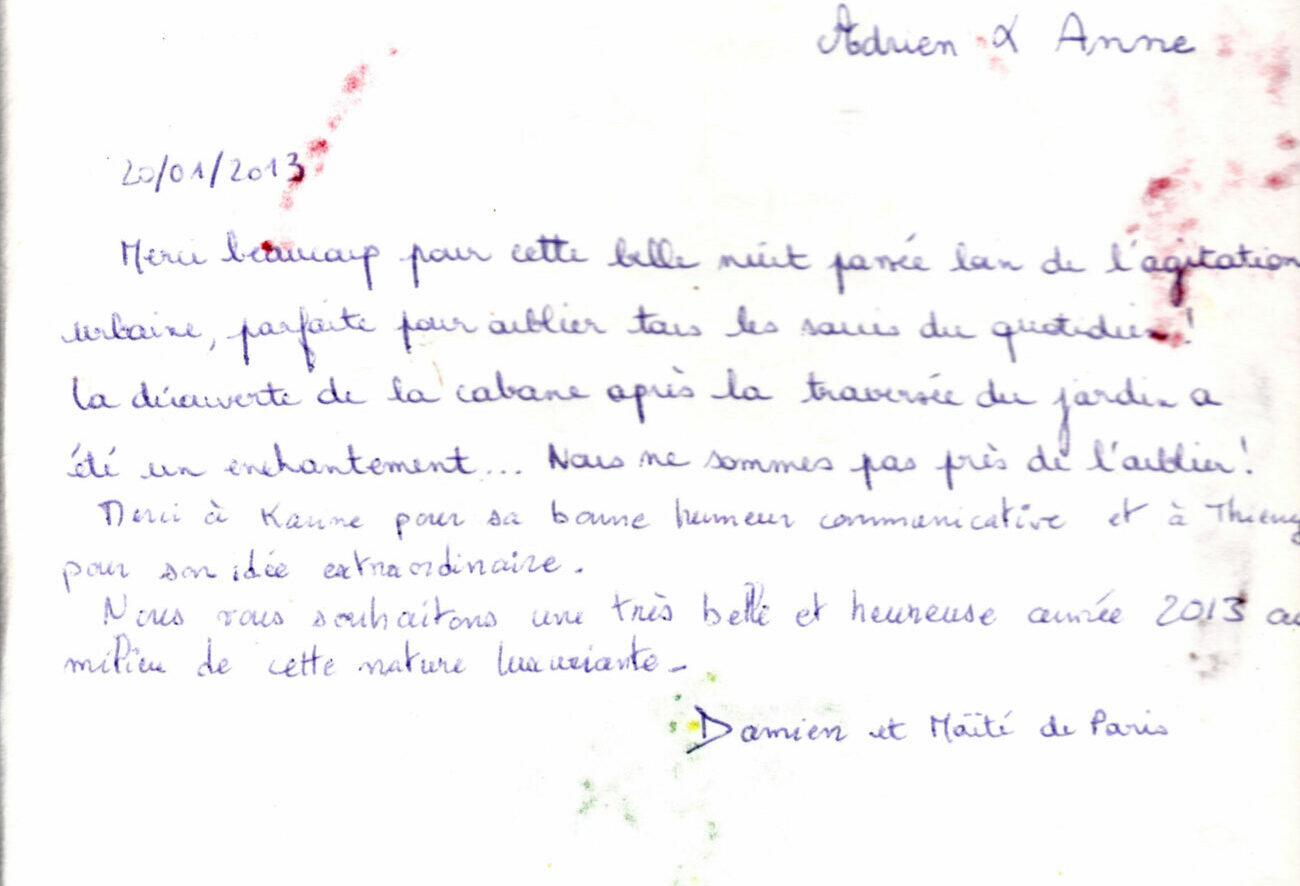 Adrien & Anne
20/01/2013
Merci beaucoup pour cette belle nuit passée loin de l'agitation
urbaine, parfaite pour oublier tous les soucis du quotidien !
La découverte de la cabane après la traversée du jardin a
été un enchantement... Nous ne sommes pas près de l'oublier !
Merci à Karine pour sa bonne humeur communicative et à Thierry
pour son idée extraordinaire.
Nous vous souhaitons une très belle et heureuse année 2013 au
milieu de cette nature luxuriante -
Damien et Maïté de Paris